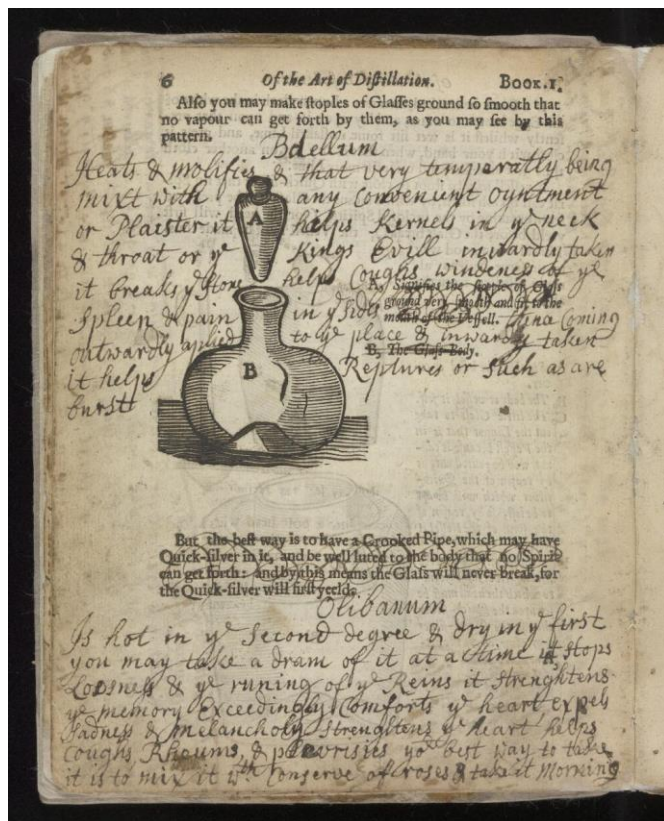 6 Of the Art of Diſtillation. BOOK.I.
Alſo you may make ſtoples of Glaſſes ground ſo ſmooth that
no vapour can get forth by them, as you may ſee by this
pattern.
Bdellum
Heats & molifies & that very temperatly being
mixt with any convenient oyntment
or Plaister it helps Kernels in yᵉ neck
& throat or yᵉ Kings Evill inwardly taken
it breaks yᵉ stone helps Coughs windeness of yᵉ
A, Signifies the ſtople of Glaſs
ground very ſmooth and fit to the
mouth of the Veſſell.
Spleen & pain in yᵉ sids coming
outwardly applied to yᵉ place & inwardly taken
B, The Glaſs-Body.
it helps Reptures or such as are
burstt
A
B
But the beſt way is to have a Crooked Pipe, which may have
Quick-ſilver in it, and be well luted to the body that no Spirit
can get forth: and by this means the Glaſs will never break, for
the Quick-ſilver will firſt yeeld.
Olibanum
Is hot in yᵉ Second degree & dry in yᵉ first
you may take a dram of it at a time it stops
Loosness & yᵉ runing of yᵉ Reins it strenghtens
yᵉ memory Exceedingly Comforts yᵉ heart expels
Sadness & Melancholy strenghtens yᵉ heart helps
Coughs Rheums, & plevrisies yoʳ best way to take
it is to mix it wᵗʰ Conserve of roses & take it Morning